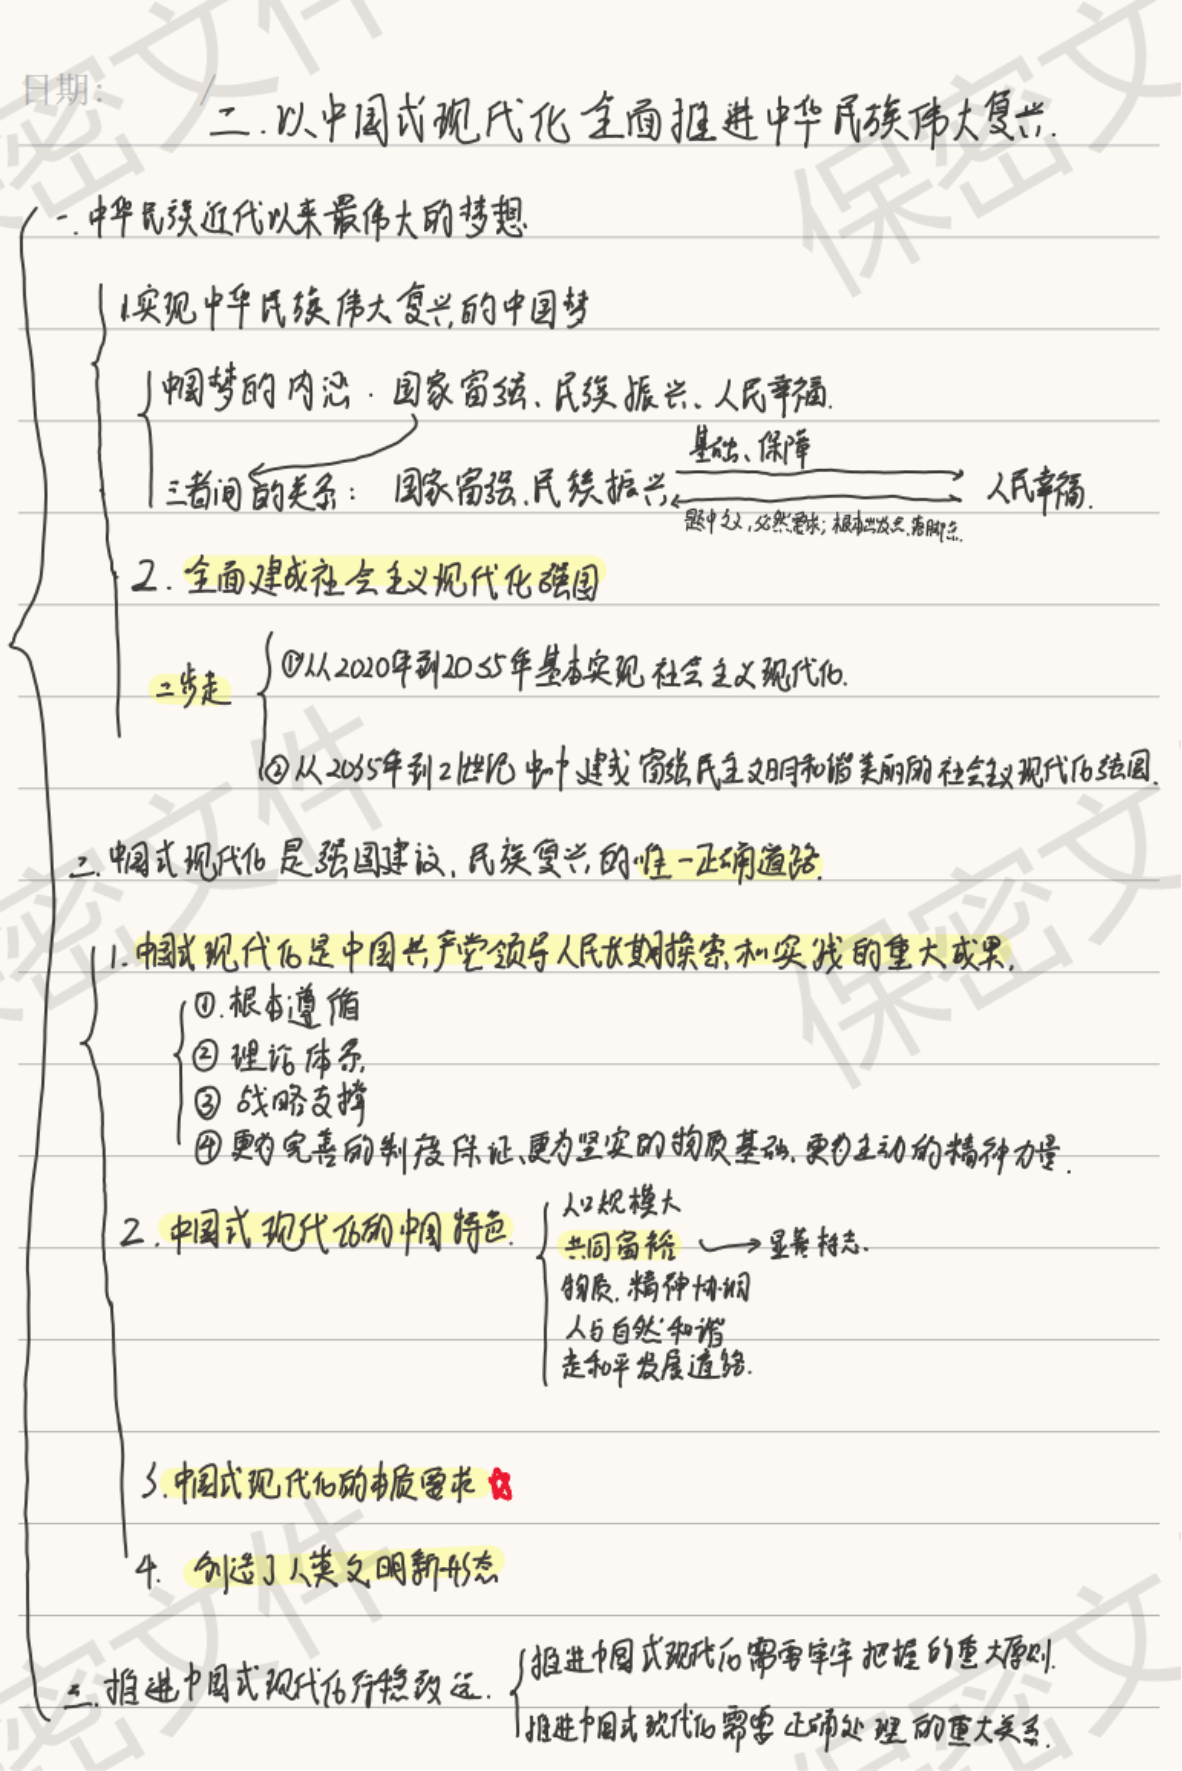 日期:
二.以中国式现代化全面推进中华民族伟大复兴.
一.中华民族近代以来最伟大的梦想
1.实现中华民族伟大复兴的中国梦
中国梦的内涵.国家富强、民族振兴、人民幸福.
基础、保障
三者间的关系:国家富强、民族振兴 人民幸福.
题中之义,必然要求;根本出发点、落脚点.
2.全面建成社会主义现代化强国
①从2020年到2035年基本实现社会主义现代化.
二步走
②从2035年到21世纪中叶建成富强民主文明和谐美丽的社会主义现代化强国.
二.中国式现代化是强国建议、民族复兴的唯一正确道路.
1.中国式现代化是中国共产党领导人民长期探索和实践的重大成果.
①.根本遵循
②理论体系
③战略支撑
④更为完善的制度保证、更为坚实的物质基础、更为主动的精神力量.
人口规模大
2.中国式现代化的中国特色.
共同富裕 显著标志.
物质、精神协调
人与自然和谐
走和平发展道路.
3.中国式现代化的本质要求
4.创造了人类文明新形态
推进中国式现代化需要牢牢把握的重大原则.
三.推进中国式现代化行稳致远.
推进中国式现代化需要正确处理的重大关系.
保密文件
保密文件
保密文件
保密文件
保密文件
保密文件